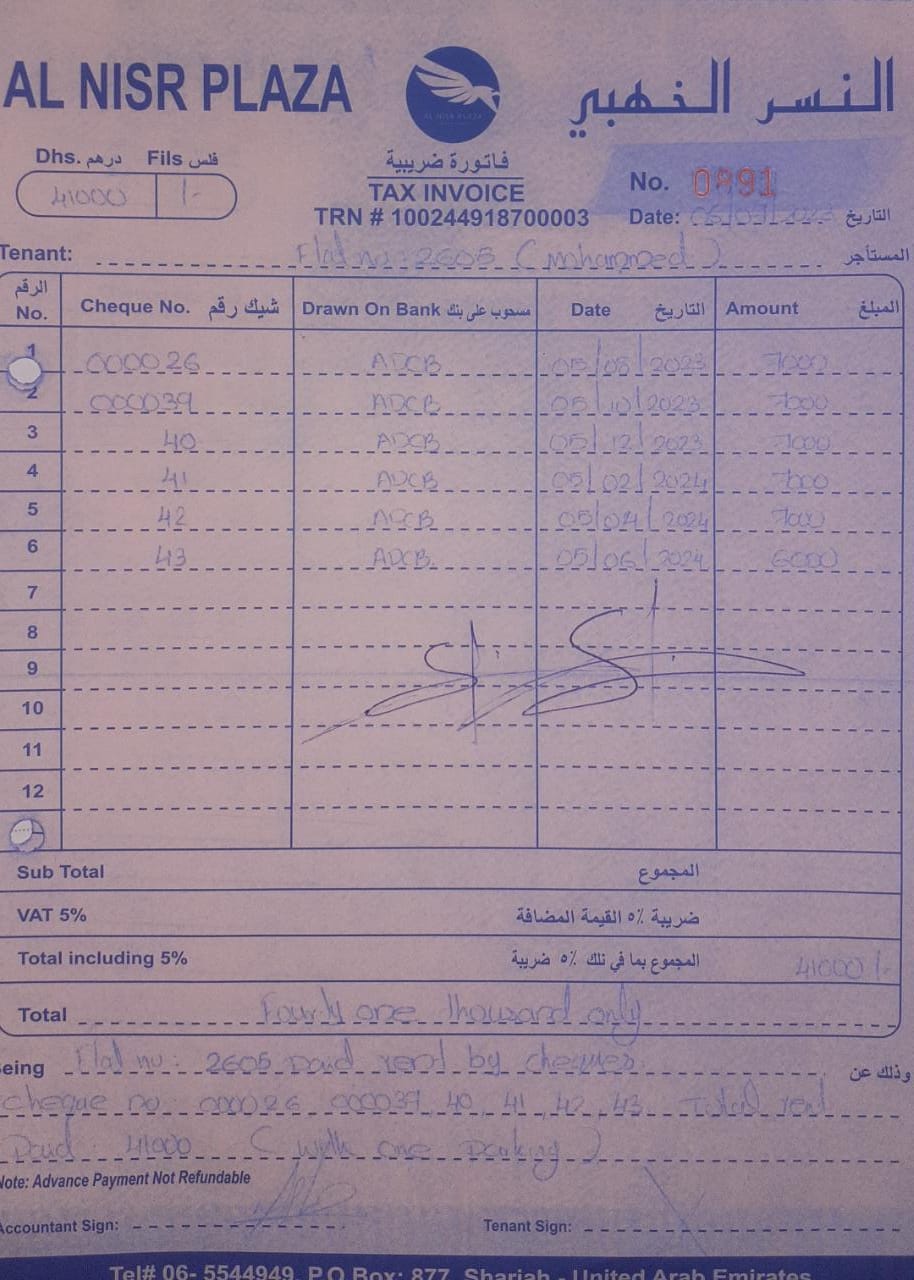 AL NISR PLAZA
AL NISR PLAZA
النسر الخهبي
Dhs. درهم Fils فلس
41000 /-
فاتورة ضريبية
TAX INVOICE
TRN # 100244918700003
No. 0891
Date: 2023 التاريخ
Tenant: Flat no: 2605 (Mohammed) المستأجر
الرقم No. Cheque No. شيك رقم Drawn On Bank مسحوب على بنك Date التاريخ Amount المبلغ
1 000026 ADCB 05/08/2023 7000
2 000039 ADCB 05/10/2023 7000
3 40 ADCB 05/12/2023 7000
4 41 ADCB 05/02/2024 7000
5 42 ADCB 05/04/2024 7000
6 43 ADCB. 05/06/2024 6000
7
8
9
10
11
12
Sub Total المجموع
VAT 5% ضريبة ٥٪ القيمة المضافة
Total including 5% المجموع بما في تلك ٥٪ ضريبة 41000/-
Total Fourty one thousand only
eing Flat no: 2605 Paid rent by cheques. وذلك عن
cheque no. 000026 000039, 40, 41, 42, 43. Total rent
Paid 41000 (with one parking)
Note: Advance Payment Not Refundable
Accountant Sign: Tenant Sign:
Tel# 06- 5544949, P.O Box: 877, Sharjah - United Arab Emirates